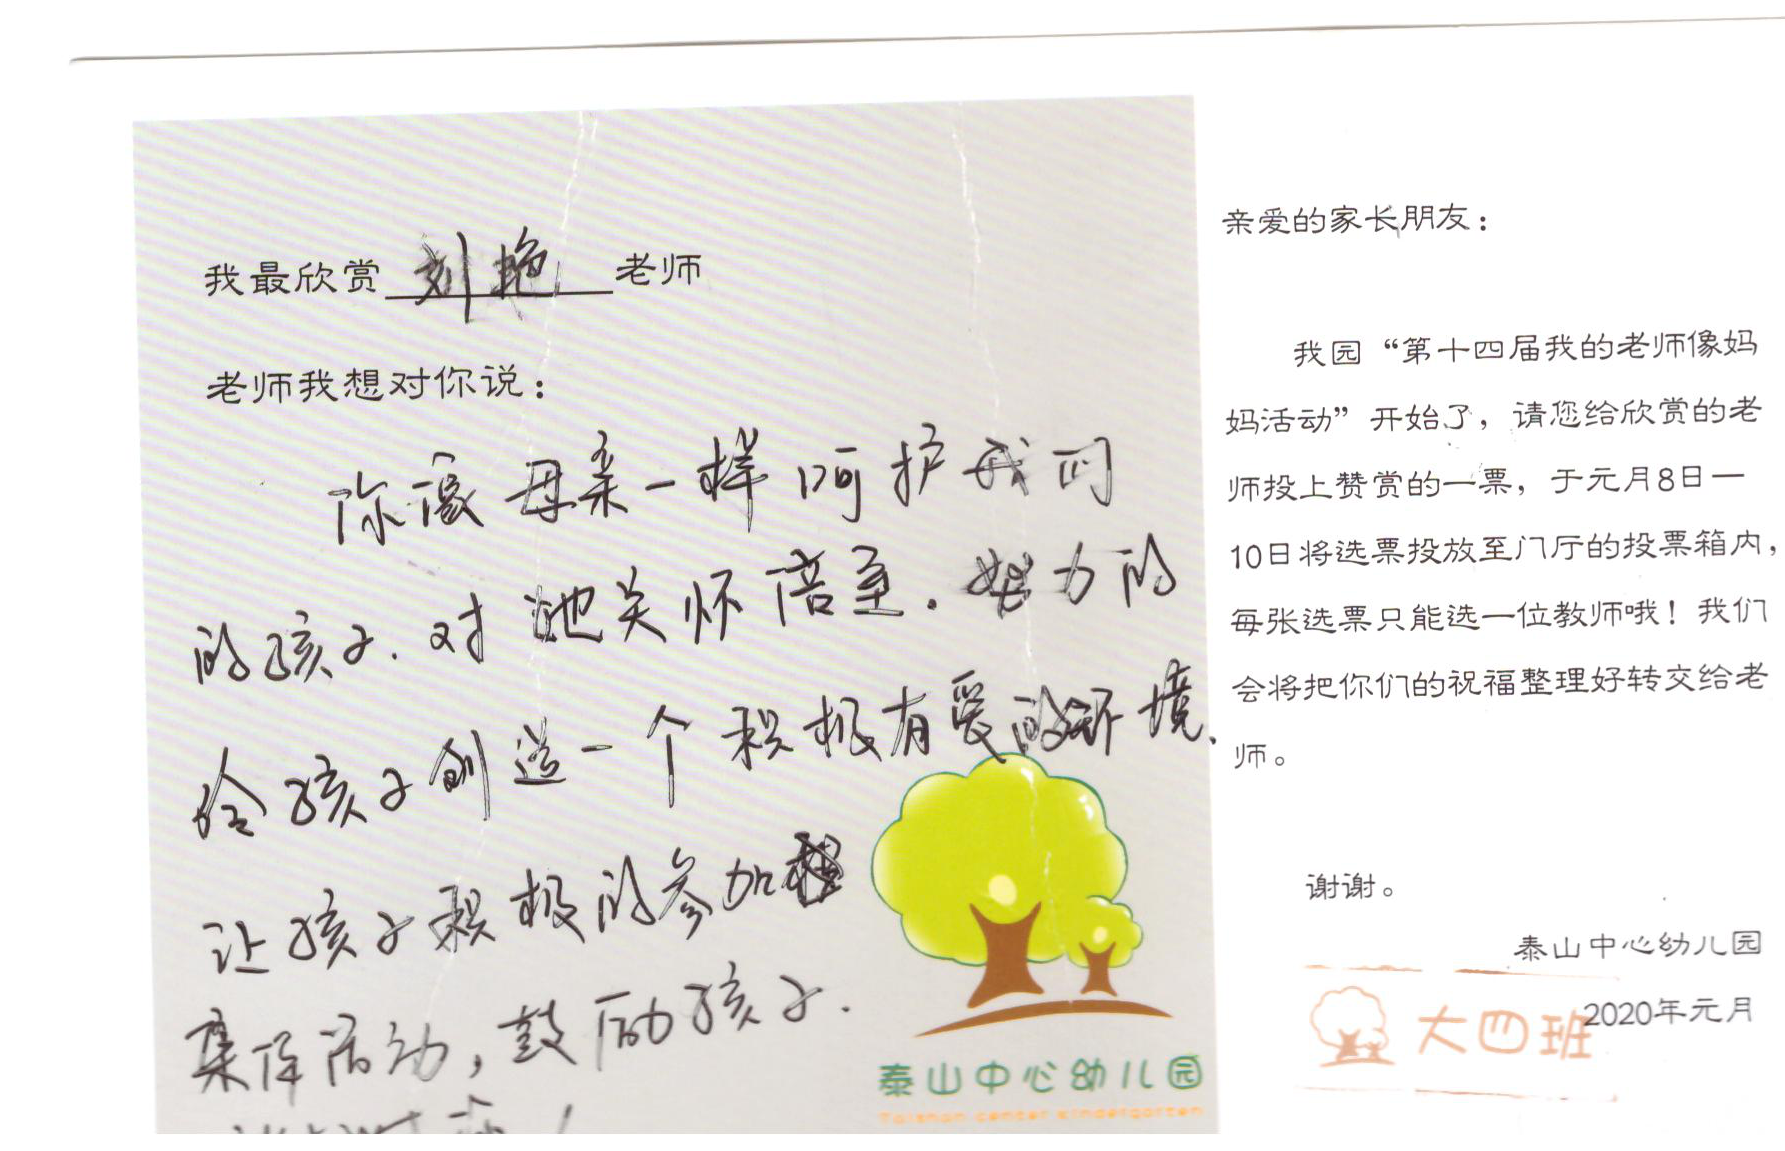 我最欣赏 刘艳 老师
老师我想对你说：
你像母亲一样呵护我们
的孩子.对她关怀倍至.努力的
给孩子创造一个积极有爱的环境.
让孩子积极的参加
集体活动，鼓励孩子.
泰山中心幼儿园
Taishan center kindergarten
亲爱的家长朋友：
我园“第十四届我的老师像妈
妈活动”开始了，请您给欣赏的老
师投上赞赏的一票，于元月8日—
10日将选票投放至门厅的投票箱内，
每张选票只能选一位教师哦！我们
会将把你们的祝福整理好转交给老
师。
谢谢。
泰山中心幼儿园
2020年元月
大四班